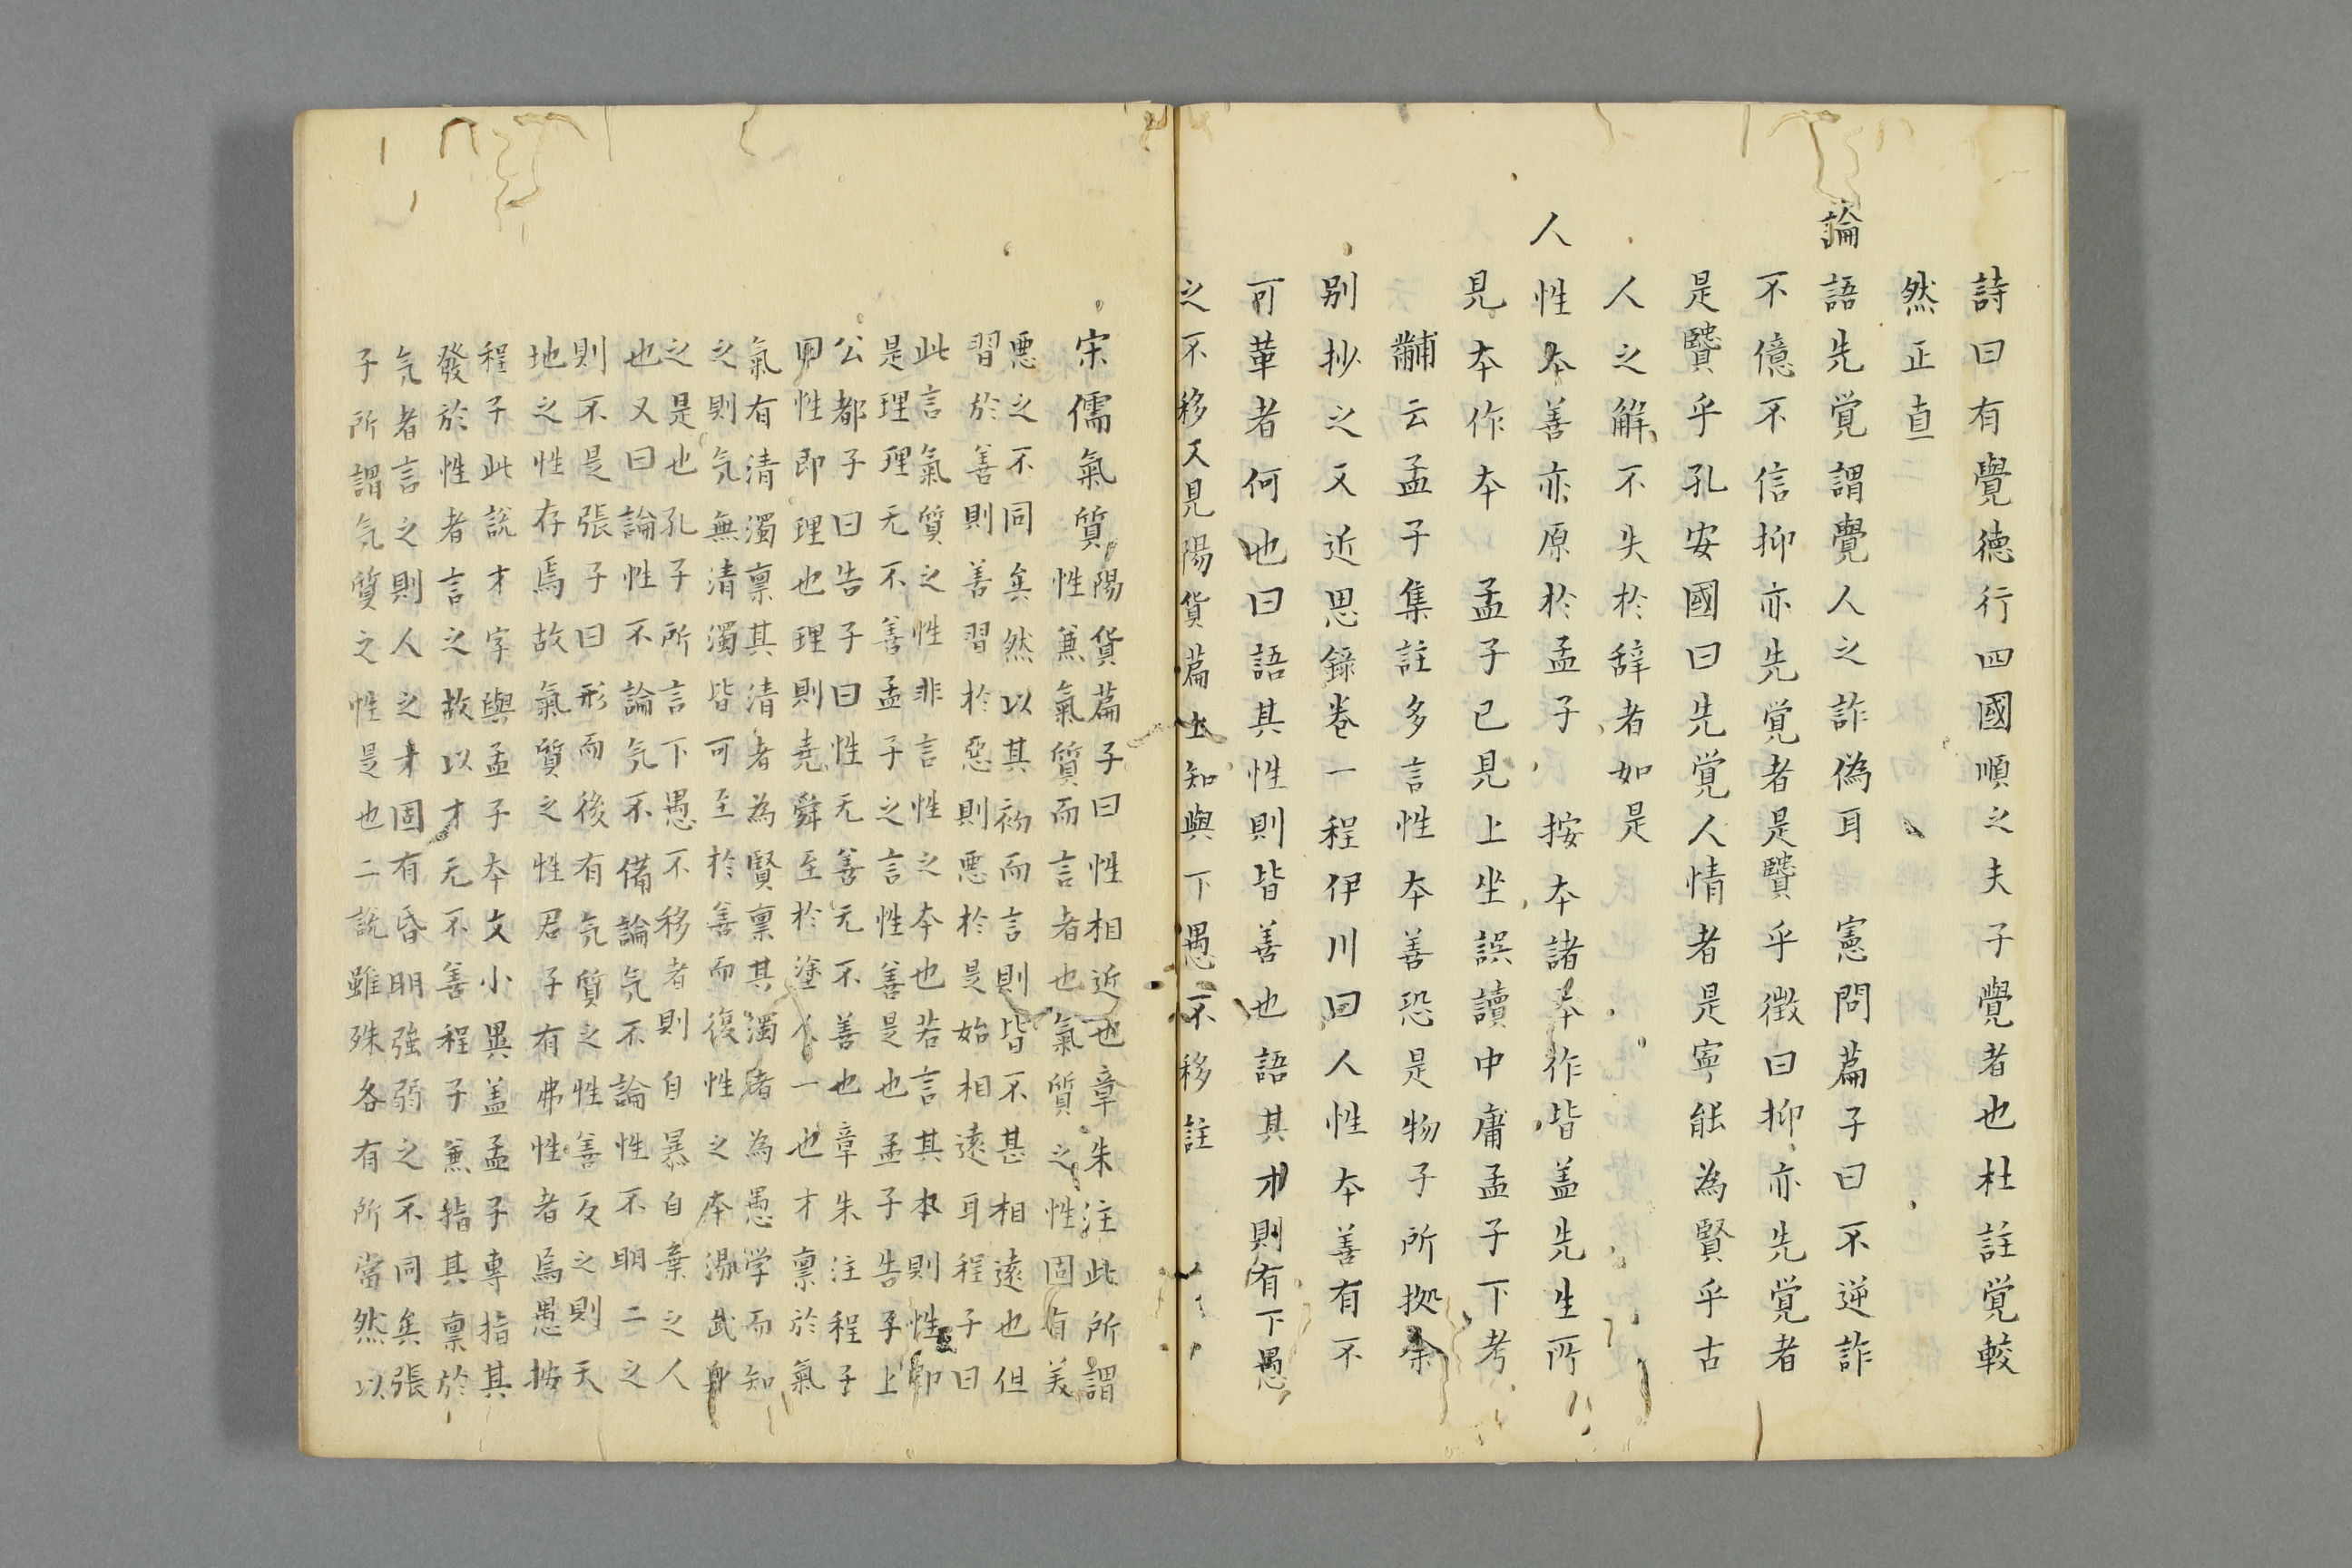 詩曰有覺徳行四國順之夫子覺者也杜註覚較
然正直
論語先覚謂覺人之詐偽耳　憲問篇子曰不逆詐
不億不信抑亦先覚者是賢乎徴曰抑亦先覚者
是賢乎孔安國曰先覚人情者是寧能為賢乎古
人之解不失於辞者如是
人性本善亦原於孟子　按本諸本作皆盖先生所
見本作本　孟子已見上坐誤讀中庸孟子下考
黼云孟子集註多言性本善恐是物子所拠余
別抄之又近思錄巻一程伊川曰人性本善有不
可革者何也曰語其性則皆善也語其才則有下愚
之不移又見陽貨篇上知與下愚不移註
宋儒氣質
陽貨篇子曰性相近也章朱注此所謂
性兼氣質而言者也氣質之性固有美
悪之不同矣然以其初而言則皆不甚相遠也但
習於善則善習於惡則悪於是始相遠耳程子曰
此言氣質之性非言性之本也若言其本則性即
是理理无不善孟子之言性善是也孟子告子上
公都子曰告子曰性无善无不善也章朱注程子
曰性即理也理則堯舜至於塗人一也才禀於氣
氣有清濁禀其清者為賢禀其濁者為愚学而知
之則気無清濁皆可至於善而復性之本湯武身
之是也孔子所言下愚不移者則自暴自棄之人
也又曰論性不論気不備論気不論性不明二之
則不是張子曰形而後有気質之性善反之則天
地之性存焉故氣質之性君子有弗性者焉愚按
程子此說才字與孟子本文小異盖孟子專指其
發於性者言之故以才无不善程子兼指其禀於
気者言之則人之才固有昏明強弱之不同矣張
子所謂気質之性是也二說雖殊各有所當然以